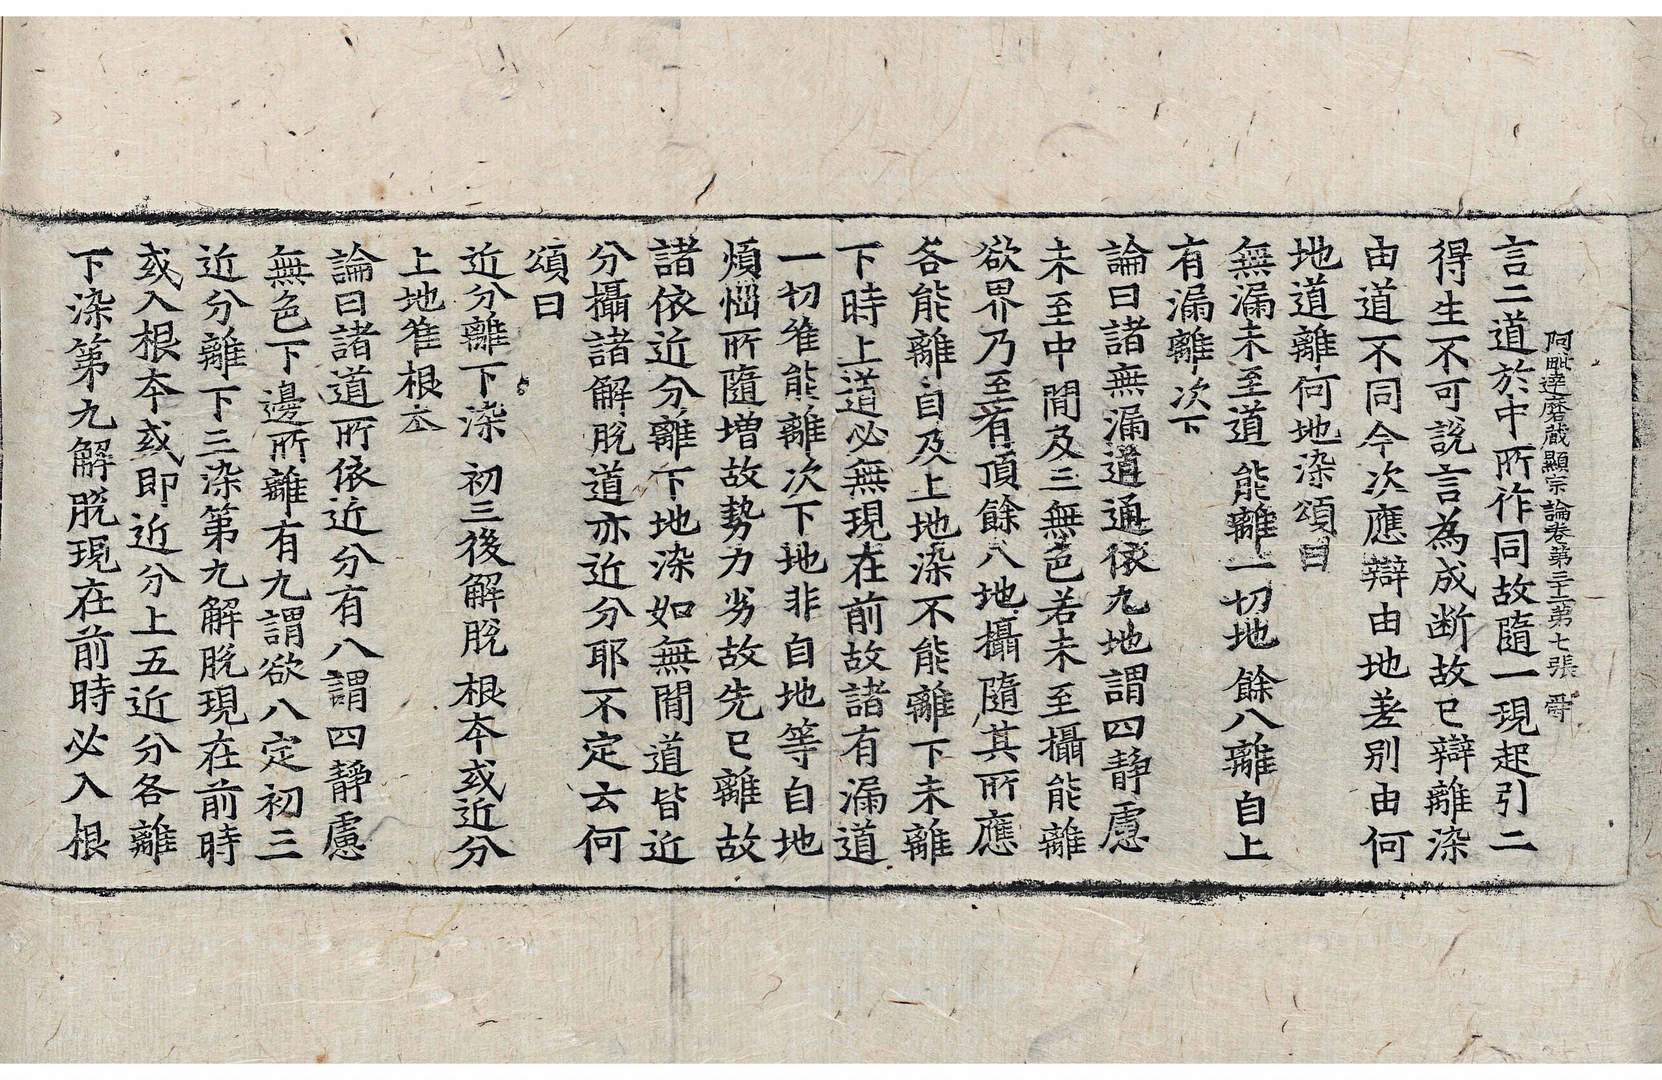 阿毗達磨藏顯宗論卷第三十三第七張 爵
言二道於中所作同故隨一現起引二
得生不可說言為成断故已辯離染
由道不同今次應辯由地差别由何
地道離何地染頌曰
無漏未至道 能離一切地 餘八離自上
有漏離次下
論曰諸無漏道通依九地謂四靜慮
未至中間及三無色若未至攝能離
欲界乃至有頂餘八地攝隨其所應
各能離自及上地染不能離下未離
下時上道必無現在前故諸有漏道
一切唯能離次下地非自地等自地
煩惱所隨增故勢力劣故先已離故
諸依近分離下地染如無間道皆近
分攝諸解脫道亦近分耶不定云何
頌曰
近分離下染 初三後解脫 根本或近分
上地唯根本
論曰諸道所依近分有八謂四靜慮
無色下邊所離有九謂欲八定初三
近分離下三染第九解脫現在前時
或入根本或即近分上五近分各離
下染第九解脫現在前時必入根